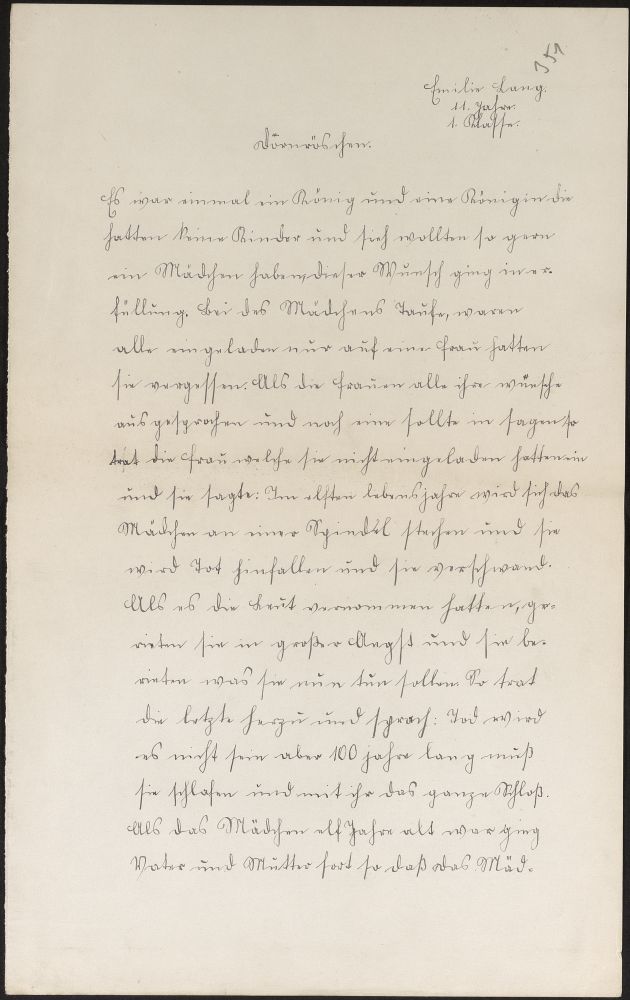 351
Emilie Lang.
11. Jahre.
1. Klasse.
Dörnröschen.
Es war einmal ein König und eine Königin die
hatten keine Kinder und sich wollten so gern
ein Mädchen haben, dieser Wunsch ging in er-
füllung. Bei des Mädchens Taufe, waren
alle eingeladen nur auf eine Frau hatten
sie vergessen. Als die Frauen alle ihre wünsche
ausgesprochen und noch eine sollte in sagen so
trat die Frau welche sie nicht eingeladen hatten ein
und sie sagte: Im elften lebensjahre wird sich das
Mädchen an einer Spindel stechen und sie
wird Tot hinfallen und sie verschwand.
Als es die Leut vernommen hatten, ge-
rieten sie in großer Angst und sie be-
rieten was sie nun tun sollen. So trat
die letzte herzu und sprach: Tod wird
es nicht sein aber 100 jahre lang muß
sie schlafen und mit ihr das ganze Schloß.
Als das Mädchen elf Jahre alt war ging
Vater und Mutter fort so daß das Mäd-